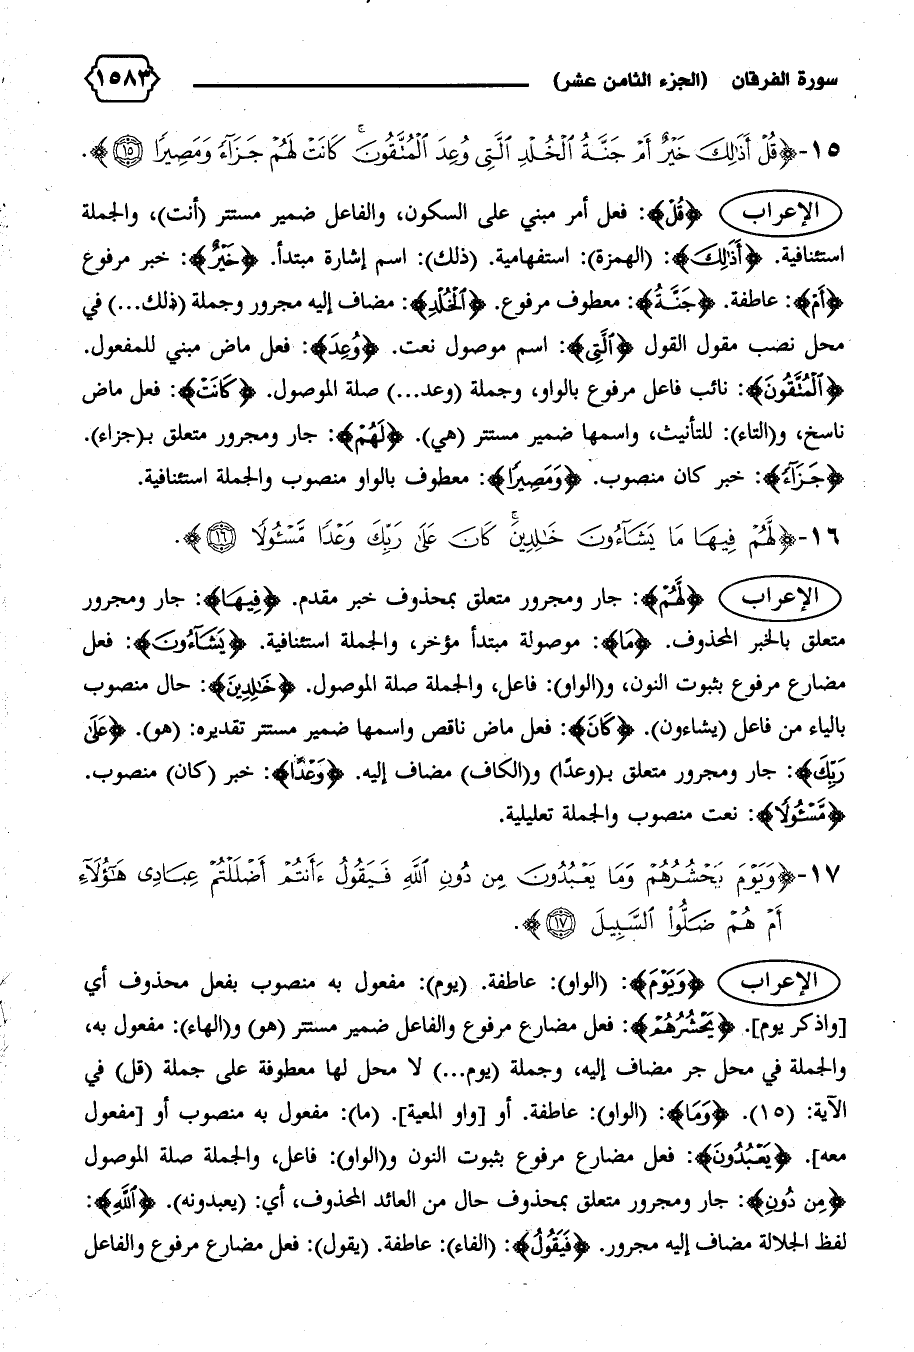 سورة الفرقان (الجزء الثامن عشر) ١٥٨٣
١٥-﴿قُلْ أَذَٰلِكَ خَيْرٌ أَمْ جَنَّةُ ٱلْخُلْدِ ٱلَّتِى وُعِدَ ٱلْمُتَّقُونَ ۚ كَانَتْ لَهُمْ جَزَآءً وَمَصِيرًا ۝١٥﴾.
الإعراب ﴿قُلْ﴾: فعل أمر مبني على السكون، والفاعل ضمير مستتر (أنت)، والجملة
استئنافية. ﴿أَذَٰلِكَ﴾: (الهمزة): استفهامية. (ذلك): اسم إشارة مبتدأ. ﴿خَيْرٌ﴾: خبر مرفوع
﴿أَمْ﴾: عاطفة. ﴿جَنَّةُ﴾: معطوف مرفوع. ﴿ٱلْخُلْدِ﴾: مضاف إليه مجرور وجملة (ذلك...) في
محل نصب مقول القول ﴿ٱلَّتِى﴾: اسم موصول نعت. ﴿وُعِدَ﴾: فعل ماض مبني للمفعول.
﴿ٱلْمُتَّقُونَ﴾: نائب فاعل مرفوع بالواو، وجملة (وعد...) صلة الموصول. ﴿كَانَتْ﴾: فعل ماض
ناسخ، و(التاء): للتأنيث، واسمها ضمير مستتر (هي). ﴿لَهُمْ﴾: جار ومجرور متعلق بـ(جزاء).
﴿جَزَآءً﴾: خبر كان منصوب. ﴿وَمَصِيرًا﴾: معطوف بالواو منصوب والجملة استئنافية.
١٦-﴿لَّهُمْ فِيهَا مَا يَشَآءُونَ خَٰلِدِينَ ۚ كَانَ عَلَىٰ رَبِّكَ وَعْدًا مَّسْـُٔولًا ۝١٦﴾.
الإعراب ﴿لَّهُمْ﴾: جار ومجرور متعلق بمحذوف خبر مقدم. ﴿فِيهَا﴾: جار ومجرور
متعلق بالخبر المحذوف. ﴿مَا﴾: موصولة مبتدأ مؤخر، والجملة استئنافية. ﴿يَشَآءُونَ﴾: فعل
مضارع مرفوع بثبوت النون، و(الواو): فاعل، والجملة صلة الموصول. ﴿خَٰلِدِينَ﴾: حال منصوب
بالياء من فاعل (يشاءون). ﴿كَانَ﴾: فعل ماض ناقص واسمها ضمير مستتر تقديره: (هو). ﴿عَلَىٰ
رَبِّكَ﴾: جار ومجرور متعلق بـ(وعدًا) و(الكاف) مضاف إليه. ﴿وَعْدًا﴾: خبر (كان) منصوب.
﴿مَّسْـُٔولًا﴾: نعت منصوب والجملة تعليلية.
١٧-﴿وَيَوْمَ يَحْشُرُهُمْ وَمَا يَعْبُدُونَ مِن دُونِ ٱللَّهِ فَيَقُولُ ءَأَنتُمْ أَضْلَلْتُمْ عِبَادِى هَٰٓؤُلَآءِ
أَمْ هُمْ ضَلُّوا۟ ٱلسَّبِيلَ ۝١٧﴾.
الإعراب ﴿وَيَوْمَ﴾: (الواو): عاطفة. (يوم): مفعول به منصوب بفعل محذوف أي
[واذكر يوم]. ﴿يَحْشُرُهُمْ﴾: فعل مضارع مرفوع والفاعل ضمير مستتر (هو) و(الهاء): مفعول به،
والجملة في محل جر مضاف إليه، وجملة (يوم...) لا محل لها معطوفة على جملة (قل) في
الآية: (١٥). ﴿وَمَا﴾: (الواو): عاطفة. أو [واو المعية]. (ما): مفعول به منصوب أو [مفعول
معه]. ﴿يَعْبُدُونَ﴾: فعل مضارع مرفوع بثبوت النون و(الواو): فاعل، والجملة صلة الموصول
﴿مِن دُونِ﴾: جار ومجرور متعلق بمحذوف حال من العائد المحذوف، أي: (يعبدونه). ﴿ٱللَّهِ﴾:
لفظ الجلالة مضاف إليه مجرور. ﴿فَيَقُولُ﴾: (الفاء): عاطفة. (يقول): فعل مضارع مرفوع والفاعل